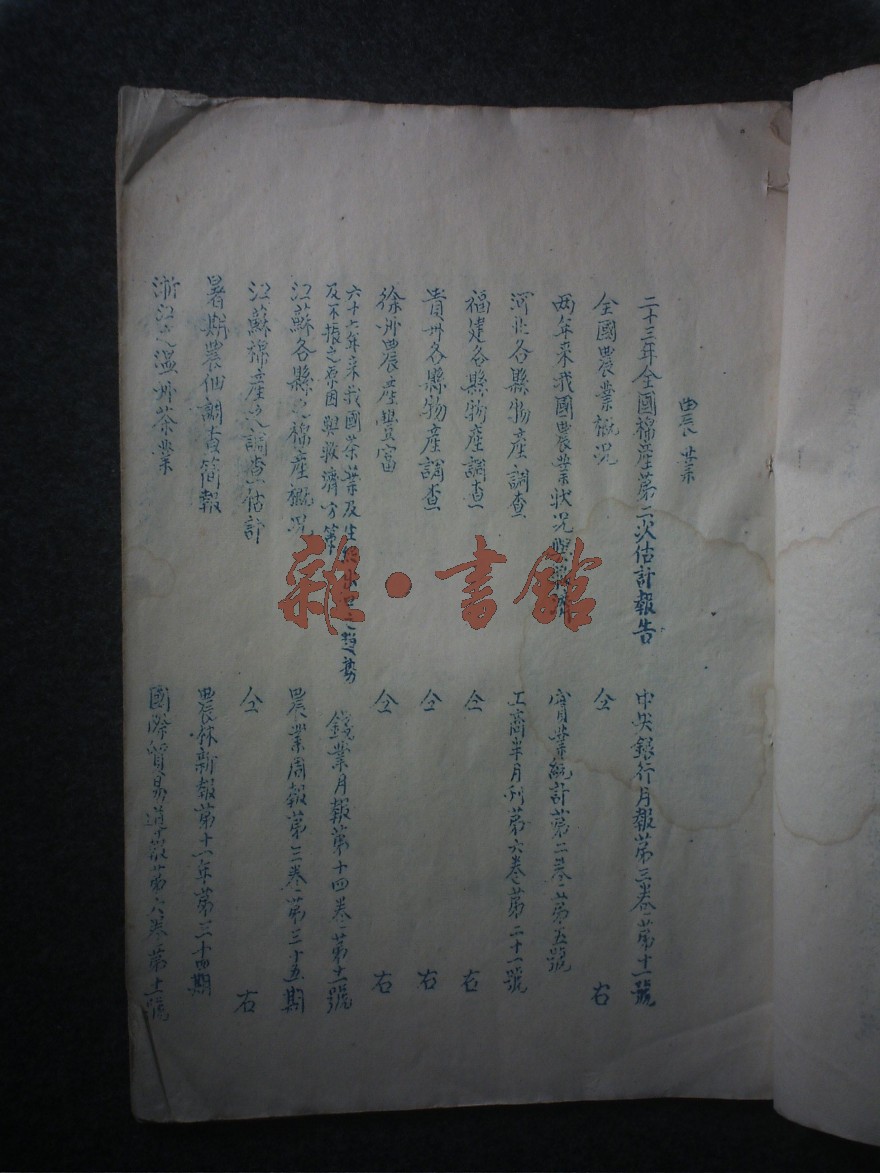 農業
二十三年全國棉產第二次估計報告 中央銀行月報第三卷第十一號
全國農業概況 仝右
兩年來我國農業狀況與 實業統計第二卷第五號
河北各縣物產調查 工商半月刊第六卷第二十一號
福建各縣物產調查 仝右
貴州各縣物產調查 仝右
徐州農產豐富 仝右
六十六年來我國茶業及生 之趨勢
及不振之原因與救濟方策 錢業月報第十四卷第十一號
江蘇各縣之棉產概況 農業周報第三卷第三十五期
江蘇棉產之調查估計 仝右
暑期農佃調查簡報 農林新報第十一年第三十四期
浙江之溫州茶業 國際貿易導報第六卷第十一號
雜·書館